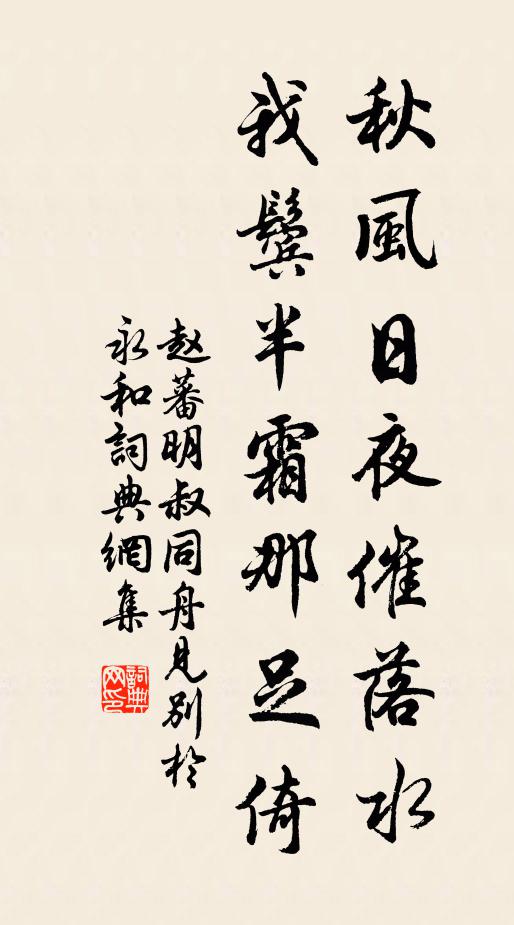 秋風日夜催落水
我鬢半霜那足倚
赵蕃明叔同舟見别於
永和詞典網集
詞典網印